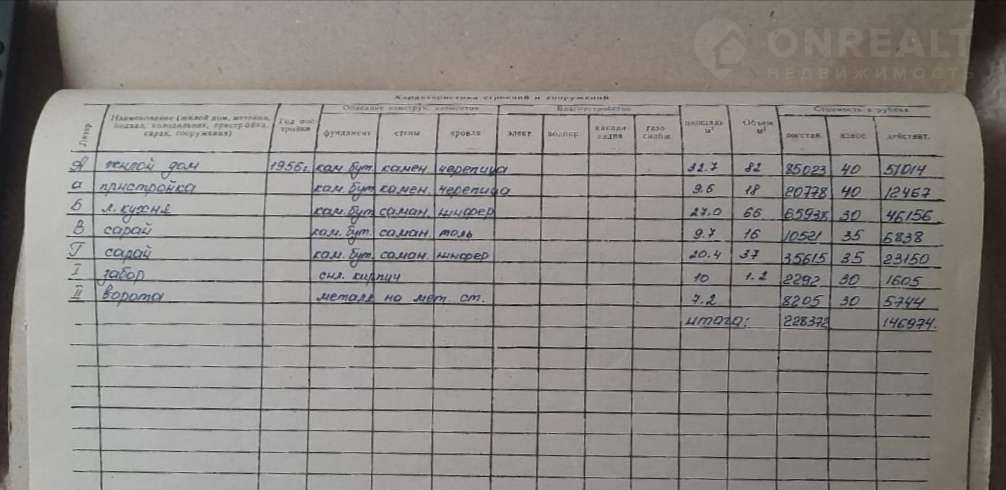 ONREALT
НЕДВИЖИМОСТЬ
Характеристика строений и сооружений
Литер
Наименование (жилой дом, веранда, подвал, холодильник, пристройка, сарай, сооружения)
Год постройки
Описание конструк. элементов
Благоустройство
Стоимость в рублях
фундамент стены кровля элект. водопр. канализация газоснабж. площадь м² Объем м³ восстан. износ действит.
А жилой дом 1956г. кам. бут. камен. черепица 32.7 82 85023 40 51014
а пристройка кам. бут. камен. черепица 9.6 18 20778 40 12467
Б л. кухня кам. бут. саман. шифер 27.0 66 65938 30 46156
В сарай кам. бут. саман. толь 9.7 16 10521 35 6838
Г сарай кам. бут. саман. шифер 20.4 37 35615 35 23150
I забор сил. кирпич 10 1.2 2292 30 1605
II ворота металл на мет. ст. 7.2 8205 30 5744
итого: 228372 146974.